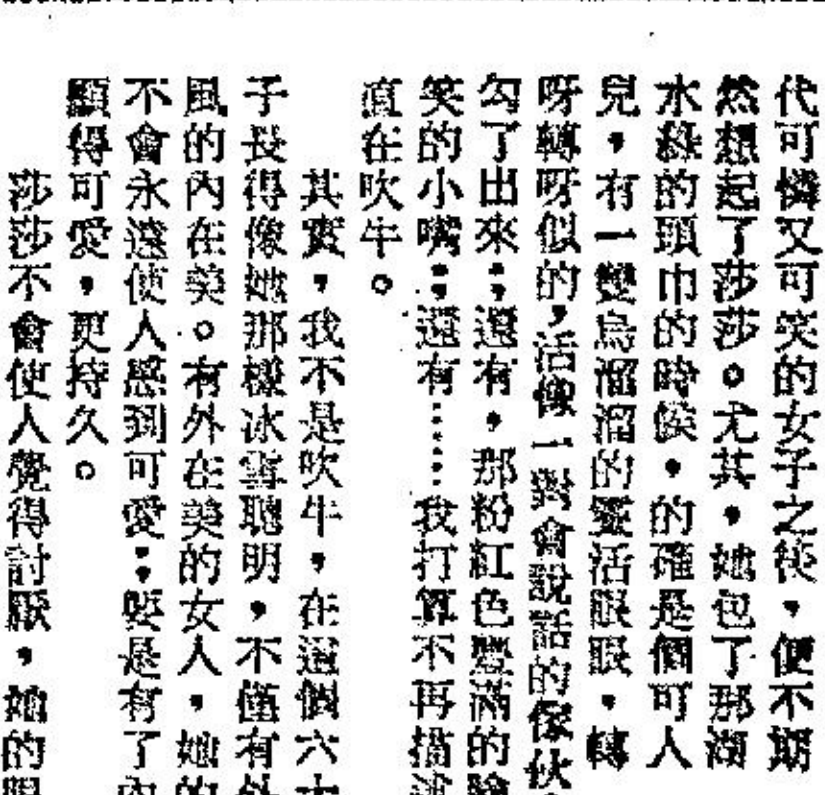 代可憐又可笑的女子之後,便不期
然想起了莎莎。尤其,她包了那湖
水綠的頭巾的時候,的確是個可人
兒,有一雙烏溜溜的靈活眼眼,轉
呀轉呀似的,活像一對會說話的傢伙
勾了出來;還有,那粉紅色豐滿的臉
笑的小嘴;還有……我打算不再描述
直在吹牛。
其實,我不是吹牛,在這個六十
子長得像她那樣冰雪聰明,不僅有外
風的內在美。有外在美的女人,她的
不會永遠使人感到可愛;要是有了內
顯得可愛,更持久。
莎莎不會使人覺得討厭,她的眼